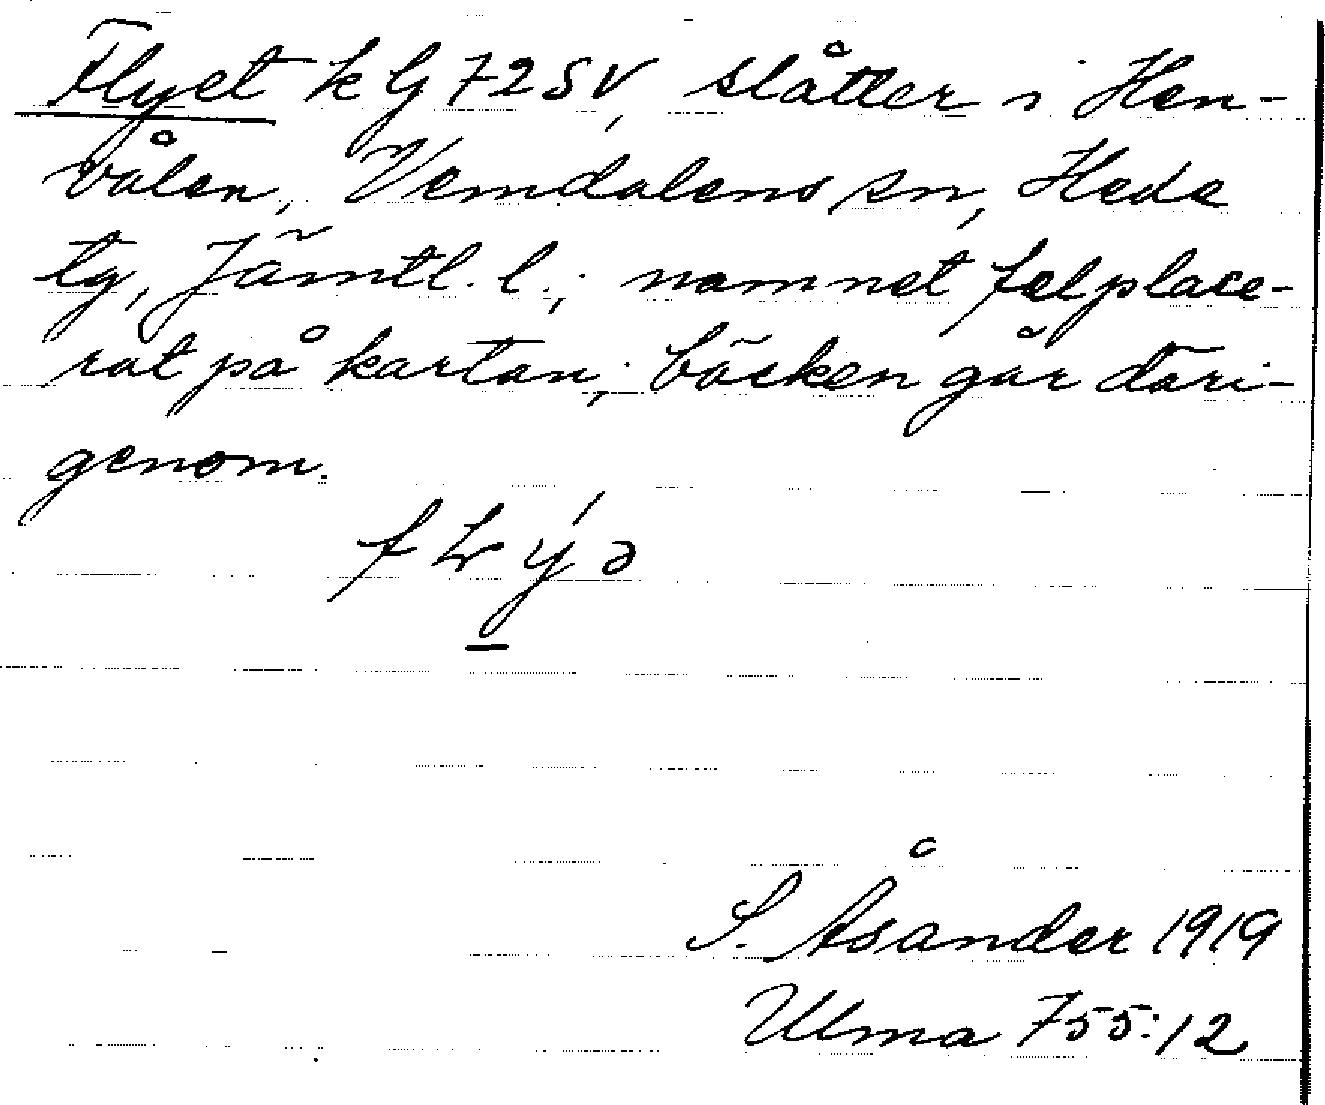 Flyet k G 72 SV, slåtter i Hen-
vålen, Vemdalens sn, Hede
tg, Jämtl. l.; namnet felplace-
rat på kartan; bäcken går däri-
genom.
S. Åsander 1919
Ulma 755:12